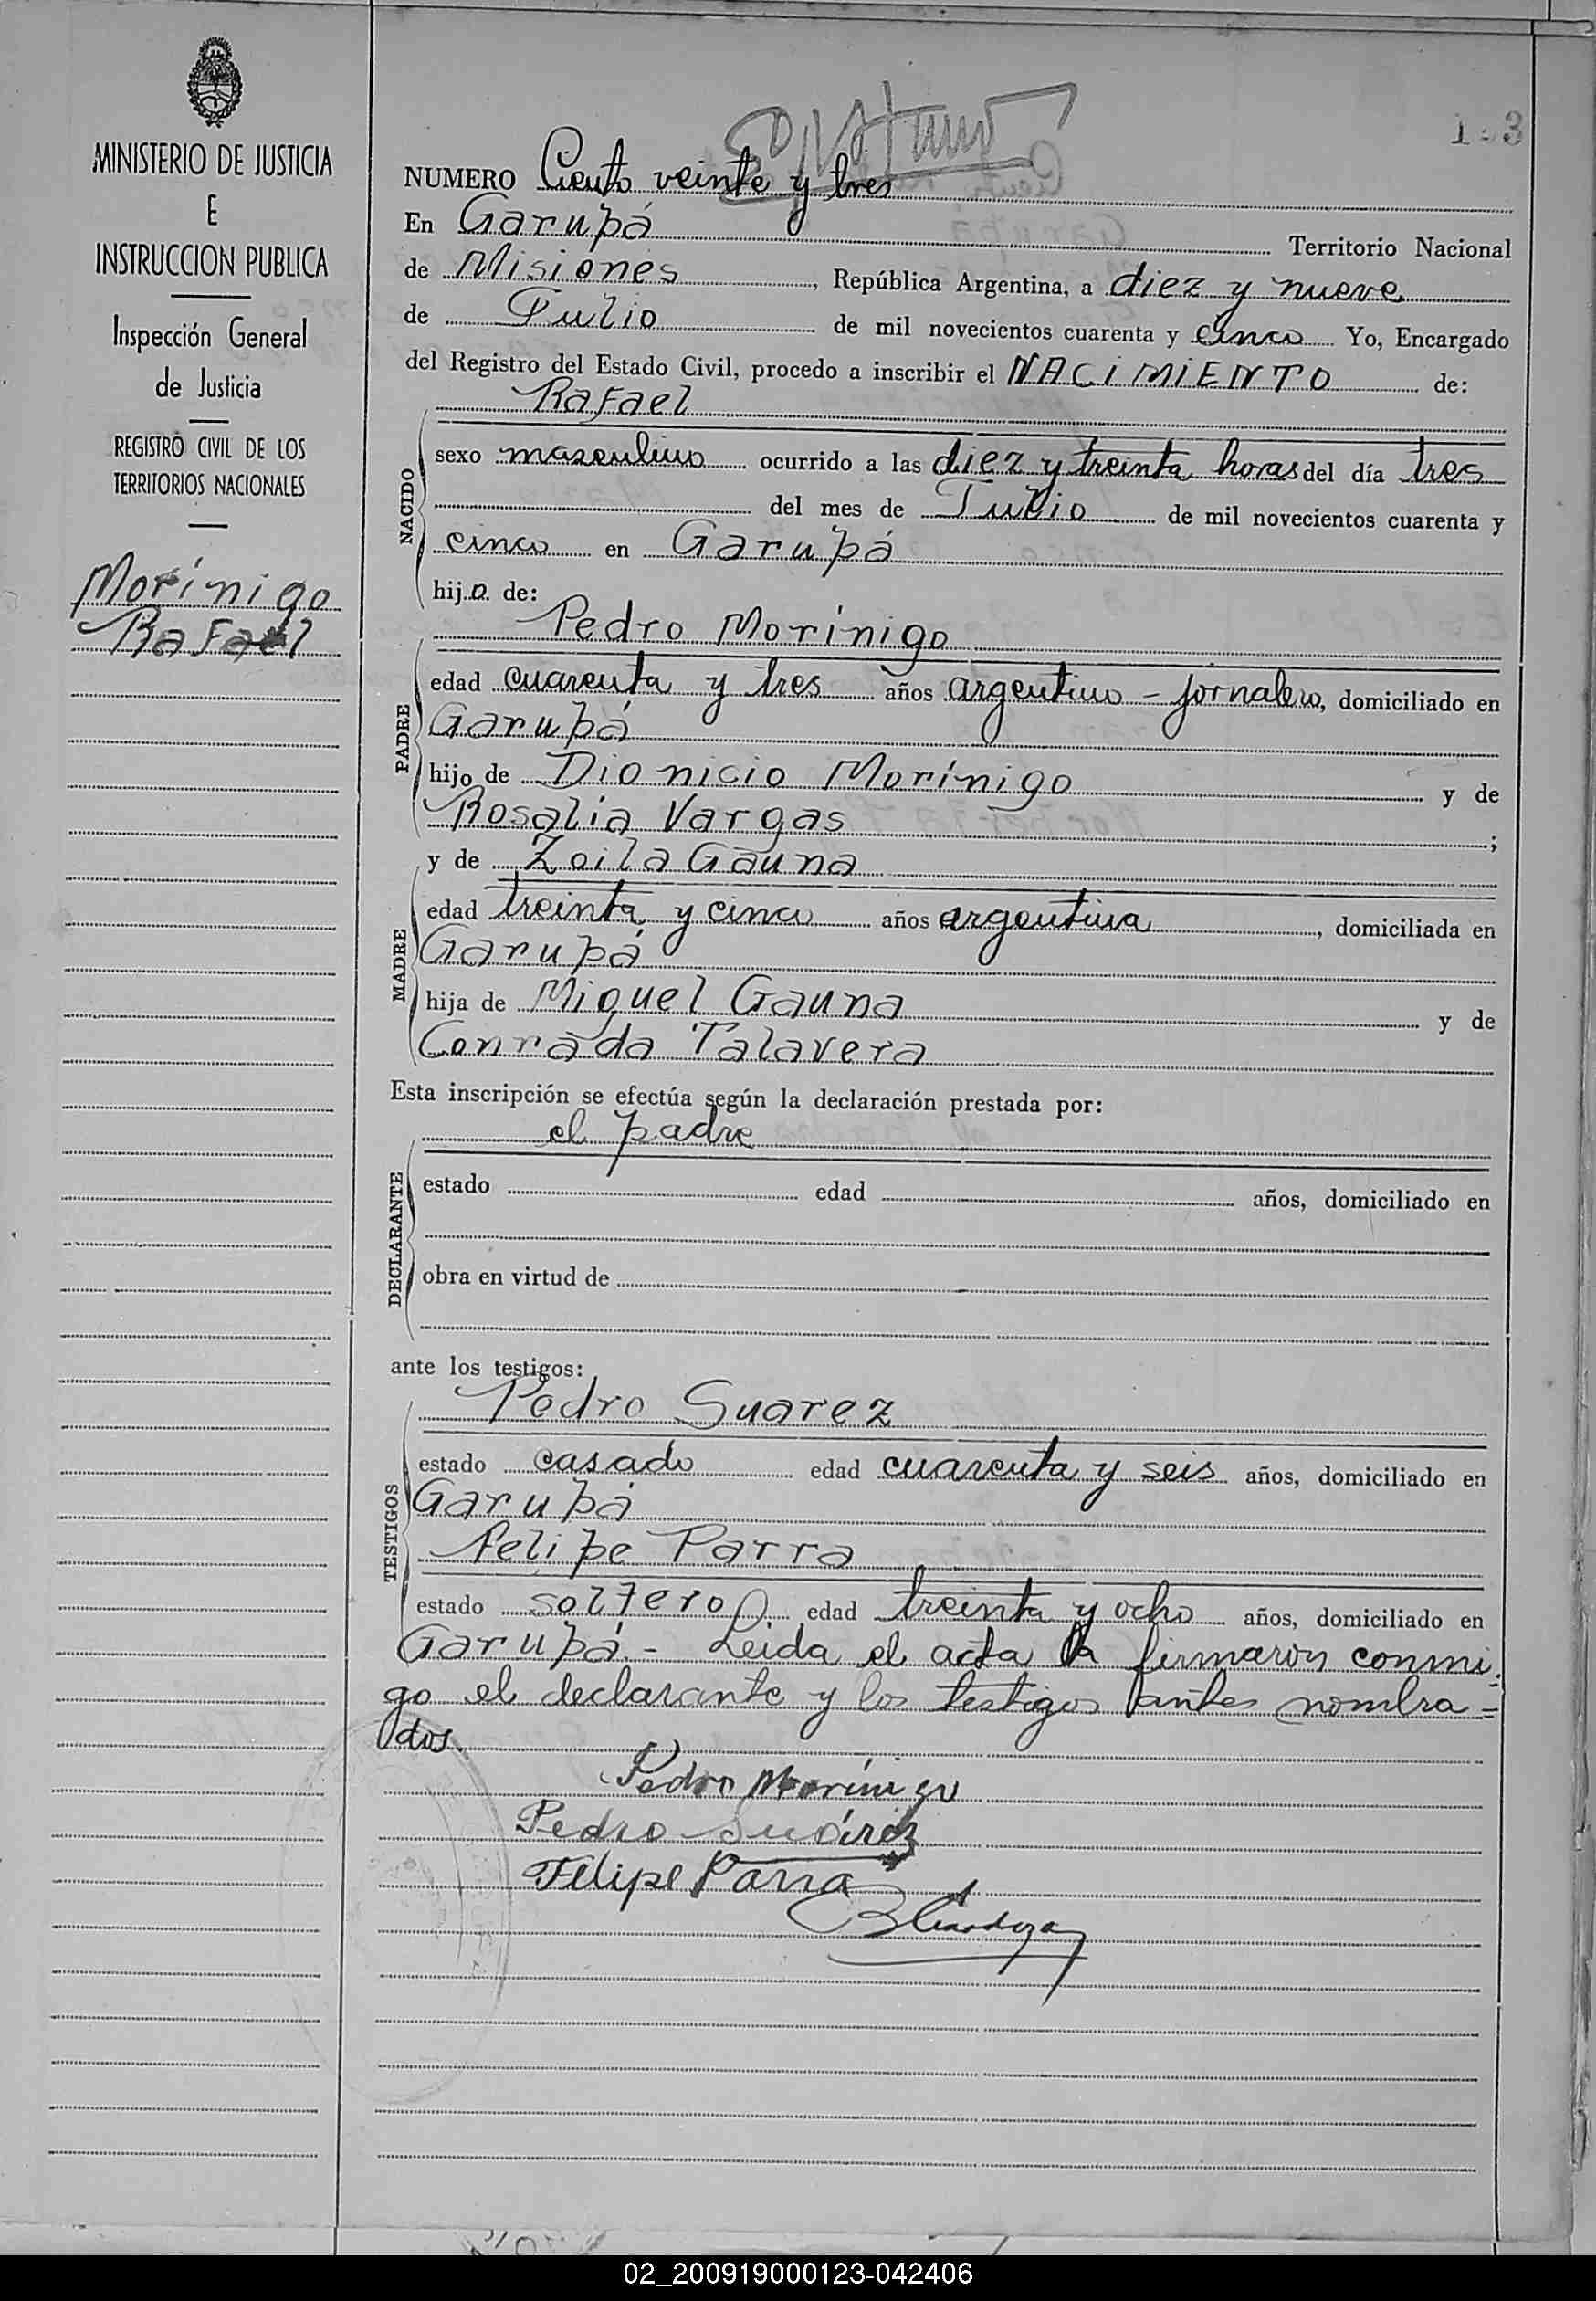 MINISTERIO DE JUSTICIA
E
INSTRUCCION PUBLICA
Inspección General
de Justicia
REGISTRO CIVIL DE LOS
TERRITORIOS NACIONALES
Morínigo
Rafael
NUMERO Ciento veinte y tres
En Garupá Territorio Nacional
de Misiones, República Argentina, a diez y nueve
de Julio de mil novecientos cuarenta y cinco Yo, Encargado
del Registro del Estado Civil, procedo a inscribir el NACIMIENTO de:
Rafael
NACIDO
sexo masculino ocurrido a las diez y treinta horas del día tres
del mes de Julio de mil novecientos cuarenta y
cinco en Garupá
hijo de:
Pedro Morínigo
PADRE
edad cuarenta y tres años argentino - jornalero, domiciliado en
Garupá
hijo de Dionicio Morínigo y de
Rosalía Vargas ;
y de Zoila Gauna
MADRE
edad treinta y cinco años argentina, domiciliada en
Garupá
hija de Miguel Gauna y de
Conrada Talavera
Esta inscripción se efectúa según la declaración prestada por:
el padre
DECLARANTE
estado edad años, domiciliado en
obra en virtud de
ante los testigos:
Pedro Suarez
TESTIGOS
estado casado edad cuarenta y seis años, domiciliado en
Garupá
Felipe Parra
estado soltero edad treinta y ocho años, domiciliado en
Garupá - Leida el acta la firmaron conmi
go el declarante y los testigos antes nombra=
dos.
Pedro Morínigo
Pedro Suárez
Felipe Parra
02_200919000123-042406